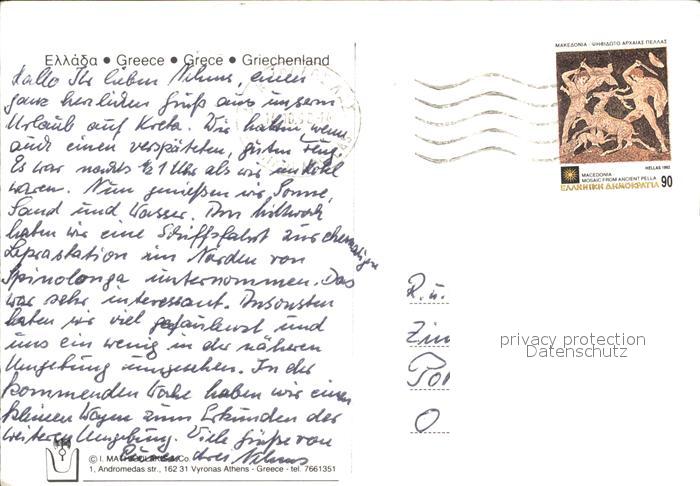 Ελλάδα • Greece • Grece • Griechenland
Hallo Ihr lieben Nilmns, einen
ganz herzlichen Gruß aus unserm
Urlaub auf Kreta. Wir hatten, wenn
auch einen verspäteten, guten Flug.
Es war nachts ½1 Uhr als wir im Hotel
waren. Nun genießen wir Sonne,
Sand und Wasser. Am Mittwoch
haben wir eine Schiffsfahrt zur ehemaligen
Leprastation im Norden von
Spinolonga unternommen. Das
war sehr interessant. Ansonsten
haben wir viel gefaulenzt und
uns ein wenig in der näheren
Umgebung umgesehen. In der
kommenden Woche haben wir einen
kleinen Wagen zum Erkunden der
weiteren Umgebung. Viele Grüße von
© I. & Co.
1, Andromedas str., 162 31 Vyronas Athens - Greece - tel. 7661351
ΜΑΚΕΔΟΝΙΑ · ΨΗΦΙΔΩΤΟ ΑΡΧΑΙΑΣ ΠΕΛΛΑΣ
HELLAS 1992
MACEDONIA
MOSAIC FROM ANCIENT PELLA
ΕΛΛΗΝΙΚΗ ΔΗΜΟΚΡΑΤΙΑ 90
R. u.
Zin
privacy protection
Datenschutz
O